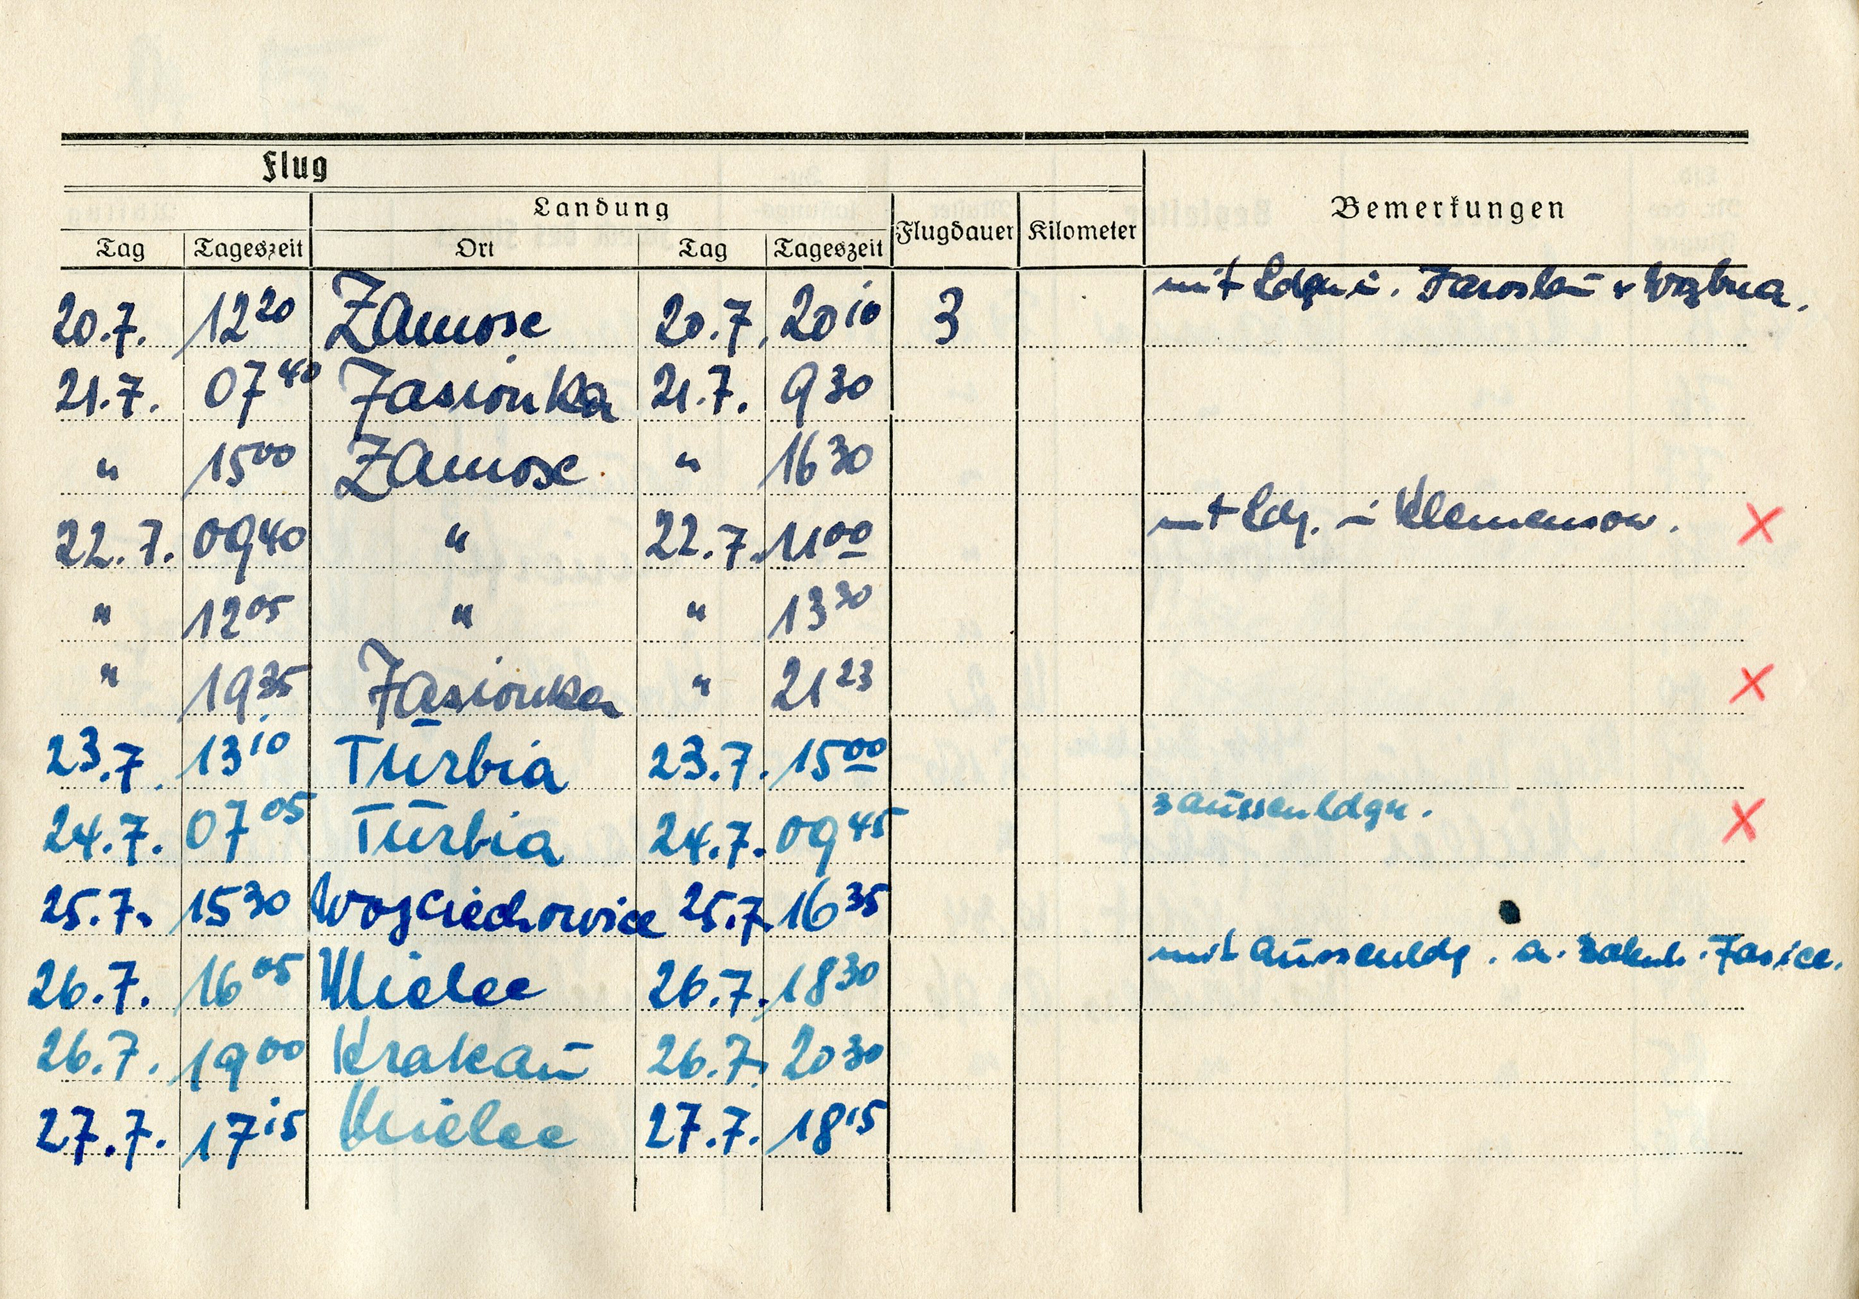 Flug
Landung
Bemerkungen
Tag Tageszeit Ort Tag Tageszeit Flugdauer Kilometer
mit Ldgn i. Jaroslau
20.7. 12 20 Zamosc 20.7. 20 10 3
21.7. 07 40 Jasionka 21.7. 9 30
" 15 00 Zamosc " 16 30
mit Ldg. in Klemensow.
22.7. 09 40 " 22.7. 11 00 X
" 12 05 " " 13 30
" 19 35 Jasionka " 21 23 X
23.7. 13 10 Turbia 23.7. 15 00
3 aussenldgn.
24.7. 07 05 Turbia 24.7. 09 45 X
25.7. 15 30 Wojciechowice 25.7. 16 35
mit Aussenldg. a.
26.7. 16 05 Mielec 26.7. 18 30
26.7. 19 00 Krakau 26.7. 20 30
27.7. 17 15 Mielec 27.7. 18 15